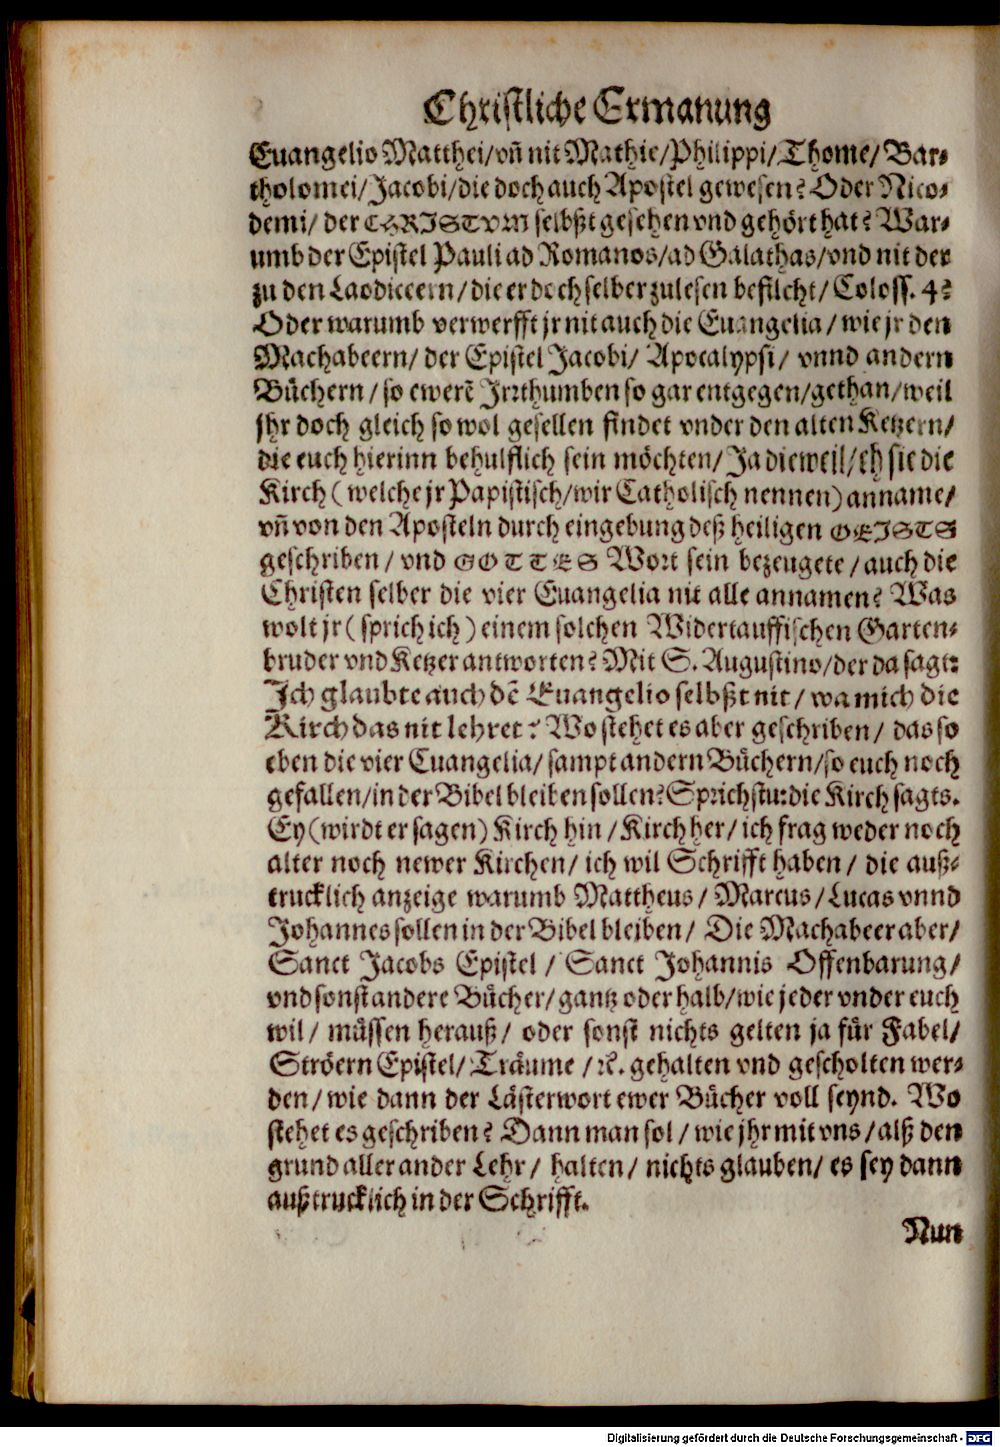 Christliche Ermanung
Euangelio Matthei/vñ nit Mathie/Philippi/Thome/Bar-
tholomei/Jacobi/die doch auch Apostel gewesen? Oder Nico-
demi/ der CHRISTVM selbßt gesehen vnd gehört hat? War-
umb der Epistel Pauli ad Romanos/ad Galathas/vnd nit der
zu den Laodiceern/die er doch selber zulesen befilcht/ Coloss. 4?
Oder warumb verwerfft jr nit auch die Euangelia/ wie jr den
Machabeern/ der Epistel Jacobi/ Apocalypsi/ vnnd andern
Bůchern/ so ewerẽ Irrthumben so gar entgegen/gethan/weil
jhr doch gleich so wol gesellen findet vnder den alten Ketzern/
die euch hierinn behulflich sein möchten/ Ja dieweil/eh sie die
Kirch (welche jr Papistisch/wir Catholisch nennen) anname/
vñ von den Aposteln durch eingebung deß heiligen GEISTS
geschriben/ vnd GOTTES Wort sein bezeugete/auch die
Christen selber die vier Euangelia nit alle annamen? Was
wolt jr (sprich ich) einem solchen Widertauffischen Garten-
bruder vnd Ketzer antworten? Mit S. Augustino/der da sagt:
Ich glaubte auch dẽ Euangelio selbßt nit/ wa mich die
Kirch das nit lehret? Wo stehet es aber geschriben/ das so
eben die vier Euangelia/ sampt andern Bůchern/so euch noch
gefallen/in der Bibel bleiben sollen? Sprichstu: die Kirch sagts.
Ey (wirdt er sagen) Kirch hin/Kirch her/ ich frag weder noch
alter noch newer Kirchen/ ich wil Schrifft haben/ die auß-
trucklich anzeige warumb Mattheus/ Marcus/Lucas vnnd
Johannes sollen in der Bibel bleiben/ Die Machabeer aber/
Sanct Jacobs Epistel/ Sanct Johannis Offenbarung/
vnd sonst andere Bůcher/gantz oder halb/wie jeder vnder euch
wil/ můssen herauß/ oder sonst nichts gelten ja für Fabel/
Ströern Epistel/ Träume/ꝛc. gehalten vnd gescholten wer-
den/wie dann der Lästerwort ewer Bůcher voll seynd. Wo
stehet es geschriben? Dann man sol/wie jhr mit vns/alß den
grund aller ander Lehr/ halten/ nichts glauben/ es sey dann
außtrucklich in der Schrifft.
Nun
Digitalisierung gefördert durch die Deutsche Forschungsgemeinschaft - DFG